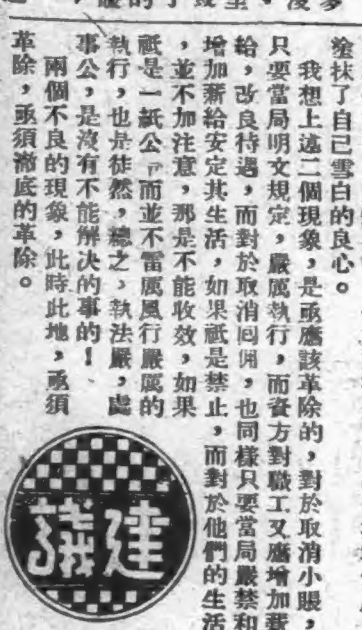 塗抹了自己雪白的良心。
我想上述二個現象，是亟應該革除的，對於取消小賬，
只要當局明文規定，嚴厲執行，而資方對職工又應增加薪
給，改良待遇，而對於取消回佣，也同樣只要當局嚴禁和
增加薪給安定其生活，如果祇是禁止，而對於他們的生活
，並不加注意，那是不能收效，如果
祇是一紙公 而並不雷厲風行嚴厲的
執行，也是徒然，總之，執法嚴，處
事公，是沒有不能解決的事的！
兩個不良的現象，此時此地，亟須
革除，亟須澈底的革除。
建議